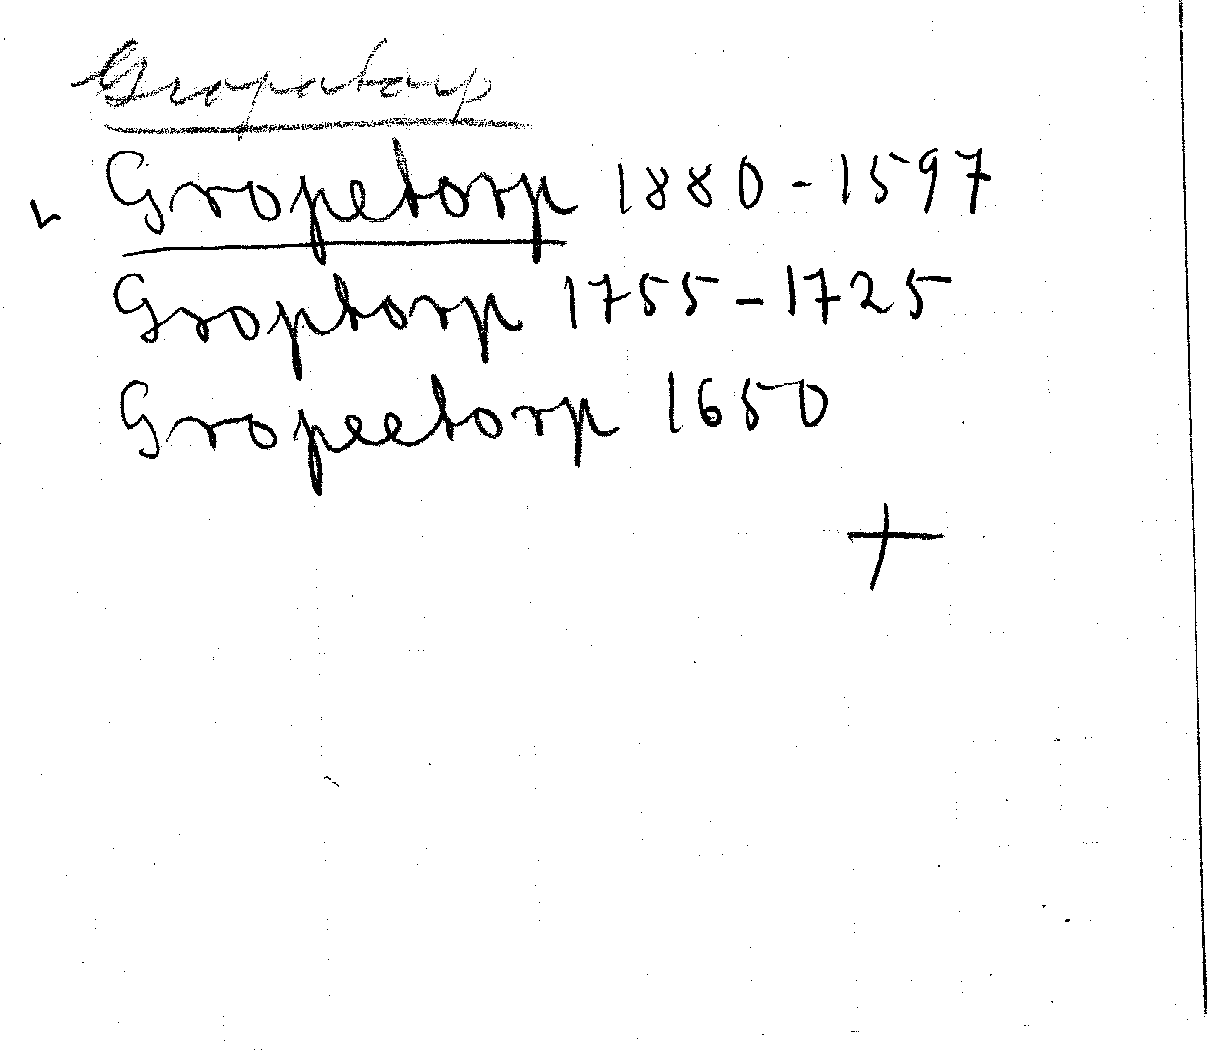 Gropatorp
Gropetorp 1880-1597
Groptorp 1755-1725
Gropeetorp 1650
+